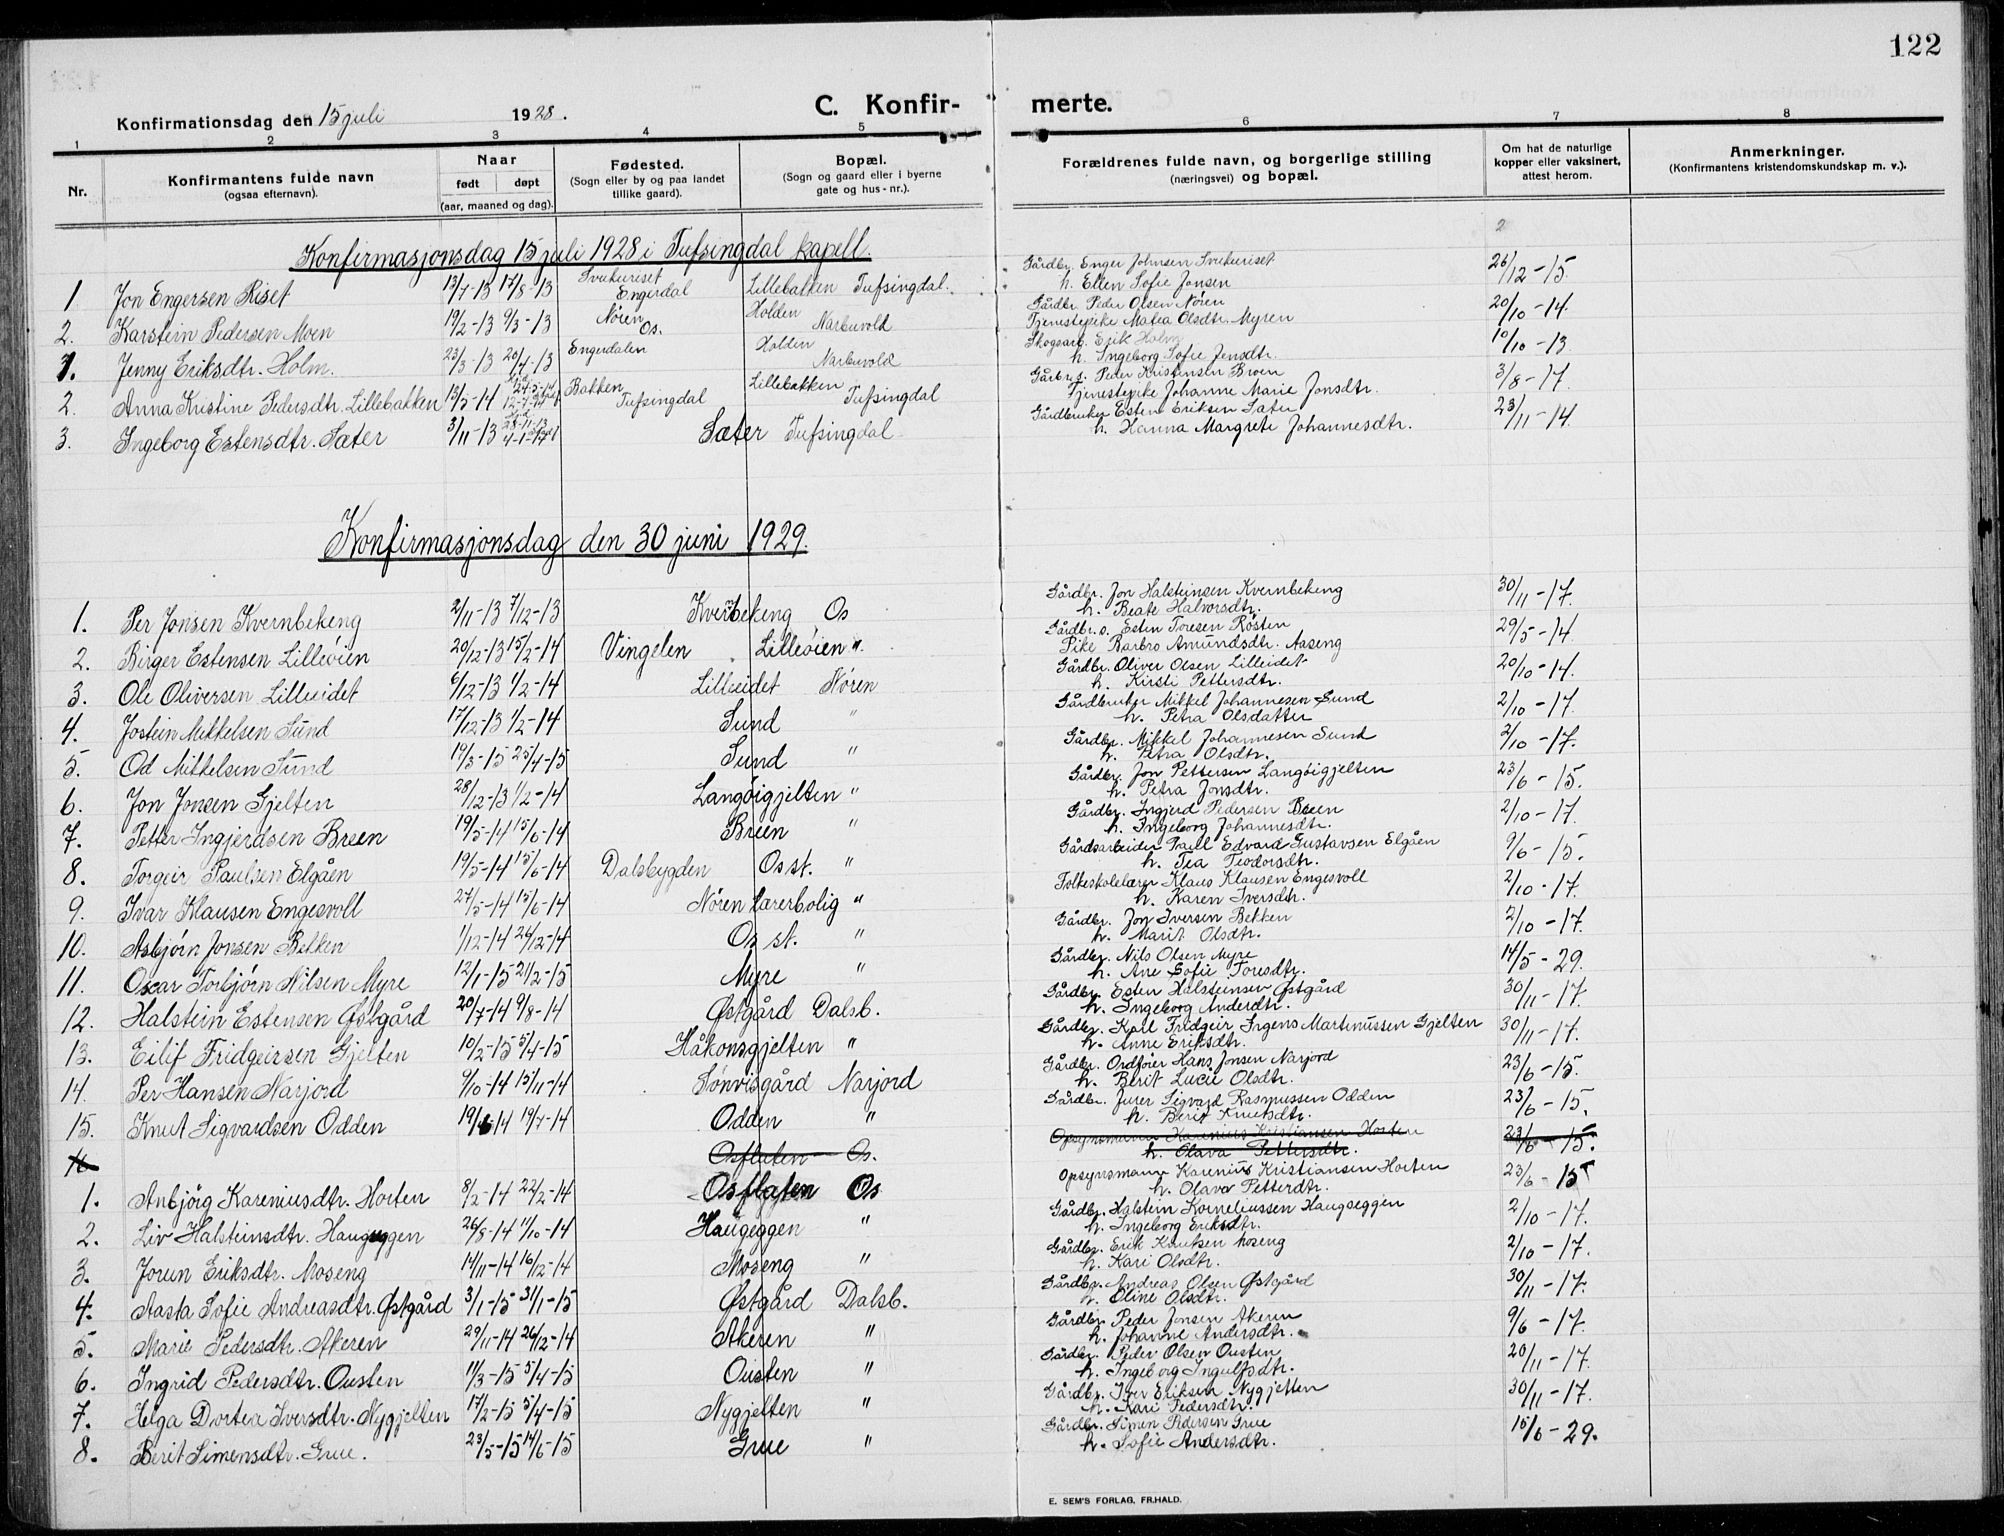 122
Konfirmationsdag den 15 juli 1928.
C. Konfirmerte.
1 2 3 4 5 6 7 8
Nr.
Konfirmantens fulde navn
(ogsaa efternavn).
Naar
født døpt
(aar, maaned og dag).
Fødested.
(Sogn eller by og paa landet
tillike gaard).
Bopæl.
(Sogn og gaard eller i byerne
gate og hus-nr.).
Forældrenes fulde navn, og borgerlige stilling
(næringsvei) og bopæl.
Om hat de naturlige
kopper eller vaksinert,
attest herom.
Anmerkninger.
(Konfirmantens kristendomskundskap m. v.).
2
Konfirmasjonsdag 15 juli 1928 i Tufsingdal kapell.
1 Jon Engersen Riset 13/7-13 17/8-13 Svukuriset Engerdal Lillebakken Tufsingdal. Gårdbr. Enger Johnsen Svukuriset h. Ellen Sofie Jonsen 26/12-15
2. Karstein Pedersen Moen 19/2-13 9/3-13 Nøren Os. Holden Narbuvold Gårdbr. Peder Olsen Nøren Tjenestepike Matea Olsdtr. Myren 20/10-14.
1. Jenny Eriksdtr. Holm. 23/3-13 20/4-13 Engerdalen Holden Narbuvold Skogsarb. Erik Holm h. Ingeborg Sofie Jensdtr. 10/10-13
2. Anna Kristine Pedersdtr. Lillebakken 13/5-14 24-5-14 12-7-14 Bakken Tufsingdal Lillebakken Tufsingdal Gårdbr.s. Peder Kristensen Broen Tjenestepike Johanne Marie Jonsdtr. 3/8-17.
3. Ingeborg Estensdtr. Sæter 3/11-13 28-11-13 4-1-14 Sæter Tufsingdal Gårdbruker Esten Eriksen Sæter h. Hanna Margrete Johannesdtr. 23/11-14.
Konfirmasjonsdag den 30 juni 1929.
1. Per Jonsen Kvernbekeng 2/11-13 7/12-13 Kvernbekeng Os Gårdbr. Jon Halsteinsen Kvernbekeng h. Beate Halvorsdtr. 30/11-17.
2. Birger Estensen Lilleøien 20/12-13 15/2-14 Vingelen Lilleøien " Gårdbr.s. Esten Toresen Røsten Pike Barbro Amundsdtr. Aaseng 29/5-14
3. Ole Oliversen Lilleeidet 6/12-13 1/2-14 Lilleeidet Nøren Gårdbr. Oliver Olsen Lilleidet h. Kirsti Pettersdtr. 20/10-14.
4. Jostein Mikkelsen Sund 17/12-13 1/2-14 Sund " Gårdbruker Mikkel Johannesen Sund h. Petra Olsdatter 2/10-17.
5. Od Mikkelsen Sund 19/3-15 25/4-15 Sund " Gårdbr. Mikkel Johannesen Sund h. Petra Olsdtr. 2/10-17.
6. Jon Jonsen Gjelten 28/12-13 1/2-14 Langøigjelten " Gårdbr. Jon Pettersen Langøigjelten h. Petra Jonsdtr. 23/6-15.
7. Petter Ingjerdsen Breen 19/5-14 15/6-14 Breen " Gårdbr. Ingjerd Pedersen Breen h. Ingeborg Johannesdtr. 2/10-17.
8. Torgeir Paulsen Elgåen 19/5-14 15/6-14 Dalsbygden Os st. " Gårdsarbeider Paul Edvard Gustavsen Elgåen h. Tea Teodorsdtr. 9/6-15.
9. Ivar Klausen Engesvoll 27/5-14 15/6-14 Nøren lærerbolig " Folkeskolelærer Klaus Klausen Engesvoll h. Karen Iversdtr. 2/10-17.
10. Asbjørn Jonsen Bekken 1/12-14 26/12-14 Os st. " Gårdbr. Jon Iversen Bekken h. Marit Olsdtr. 2/10-17.
11. Oscar Torbjørn Nilsen Myre 12/1-15 21/2-15 Myre " Gårdbr. Nils Olsen Myre h. Ane Sofie Toresdtr. 14/5-29.
12. Halstein Estensen Østgård 20/7-14 9/8-14 Østgård Dalsb. Gårdbr. Esten Halsteinsen Østgård h. Ingeborg Andersdtr. 30/11-17.
13. Eilif Fridgeirsen Gjelten 10/2-15 5/4-15 Håkonsgjelten " Gårdbr. Karl Fridgeir Ingens Martinussen Gjelten h. Anne Eriksdtr. 30/11-17.
14. Per Hansen Narjord 9/10-14 15/11-14 Sønvisgård Narjord Gårdbr. Ordfører Hans Jonsen Narjord h. Berit Lucie Olsdtr. 23/6-15.
15. Knut Sigvardsen Odden 19/6-14 19/7-14 Odden " Gårdbr. Jurer Sigvard Rasmussen Odden h. Berit Knutsdtr. 23/6-15.
16 Osflaten Os. Opsynsmann Karenius Kristiansen Horten h. Olava Pettersdtr. 23/6-15.
1. Anbjörg Kareniusdtr. Horten 8/2-14 22/2-14 Osflaten Os Opsynsmann Karenius Kristiansen Horten h. Olava Petterdtr. 23/6-15
2. Liv Halsteinsdtr. Haugeggen 26/8-14 11/10-14 Haugeggen " Gårdbr. Halstein Korneliussen Haugseggen h. Ingeborg Eriksdtr. 2/10-17.
3. Jorun Eriksdtr. Moseng 14/11-14 16/12-14 Moseng " Gårdbr. Erik Knutsen Moseng h. Kari Olsdtr. 2/10-17.
4. Aasta Sofie Andreasdtr. Østgård 3/1-15 31/1-15 Østgård Dalsb. Gårdbr. Andreas Olsen Østgård h. Oline Olsdtr. 30/11-17.
5. Marie Pedersdtr. Akeren 29/11-14 26/12-14 Akeren " Gårdbr. Peder Jonsen Akeren h. Johanne Andersdtr. 9/6-17.
6. Ingrid Pedersdtr. Ousten 11/3-15 5/4-15 Ousten " Gårdbr. Peder Olsen Ousten h. Ingeborg Ingulfsdtr. 20/11-17.
7. Helga Dortea Iversdtr. Nygjelten 17/2-15 5/4-15 Nygjelten " Gårdbr. Iver Eriksen Nygjelten h. Kari Pedersdtr. 30/11-17.
8. Berit Simensdtr. Grue. 23/5-15 14/6-15 Grue " Gårdbr. Simen Pedersen Grue h. Sofie Andersdtr. 15/6-29.
E. SEM'S FORLAG, FR.HALD.